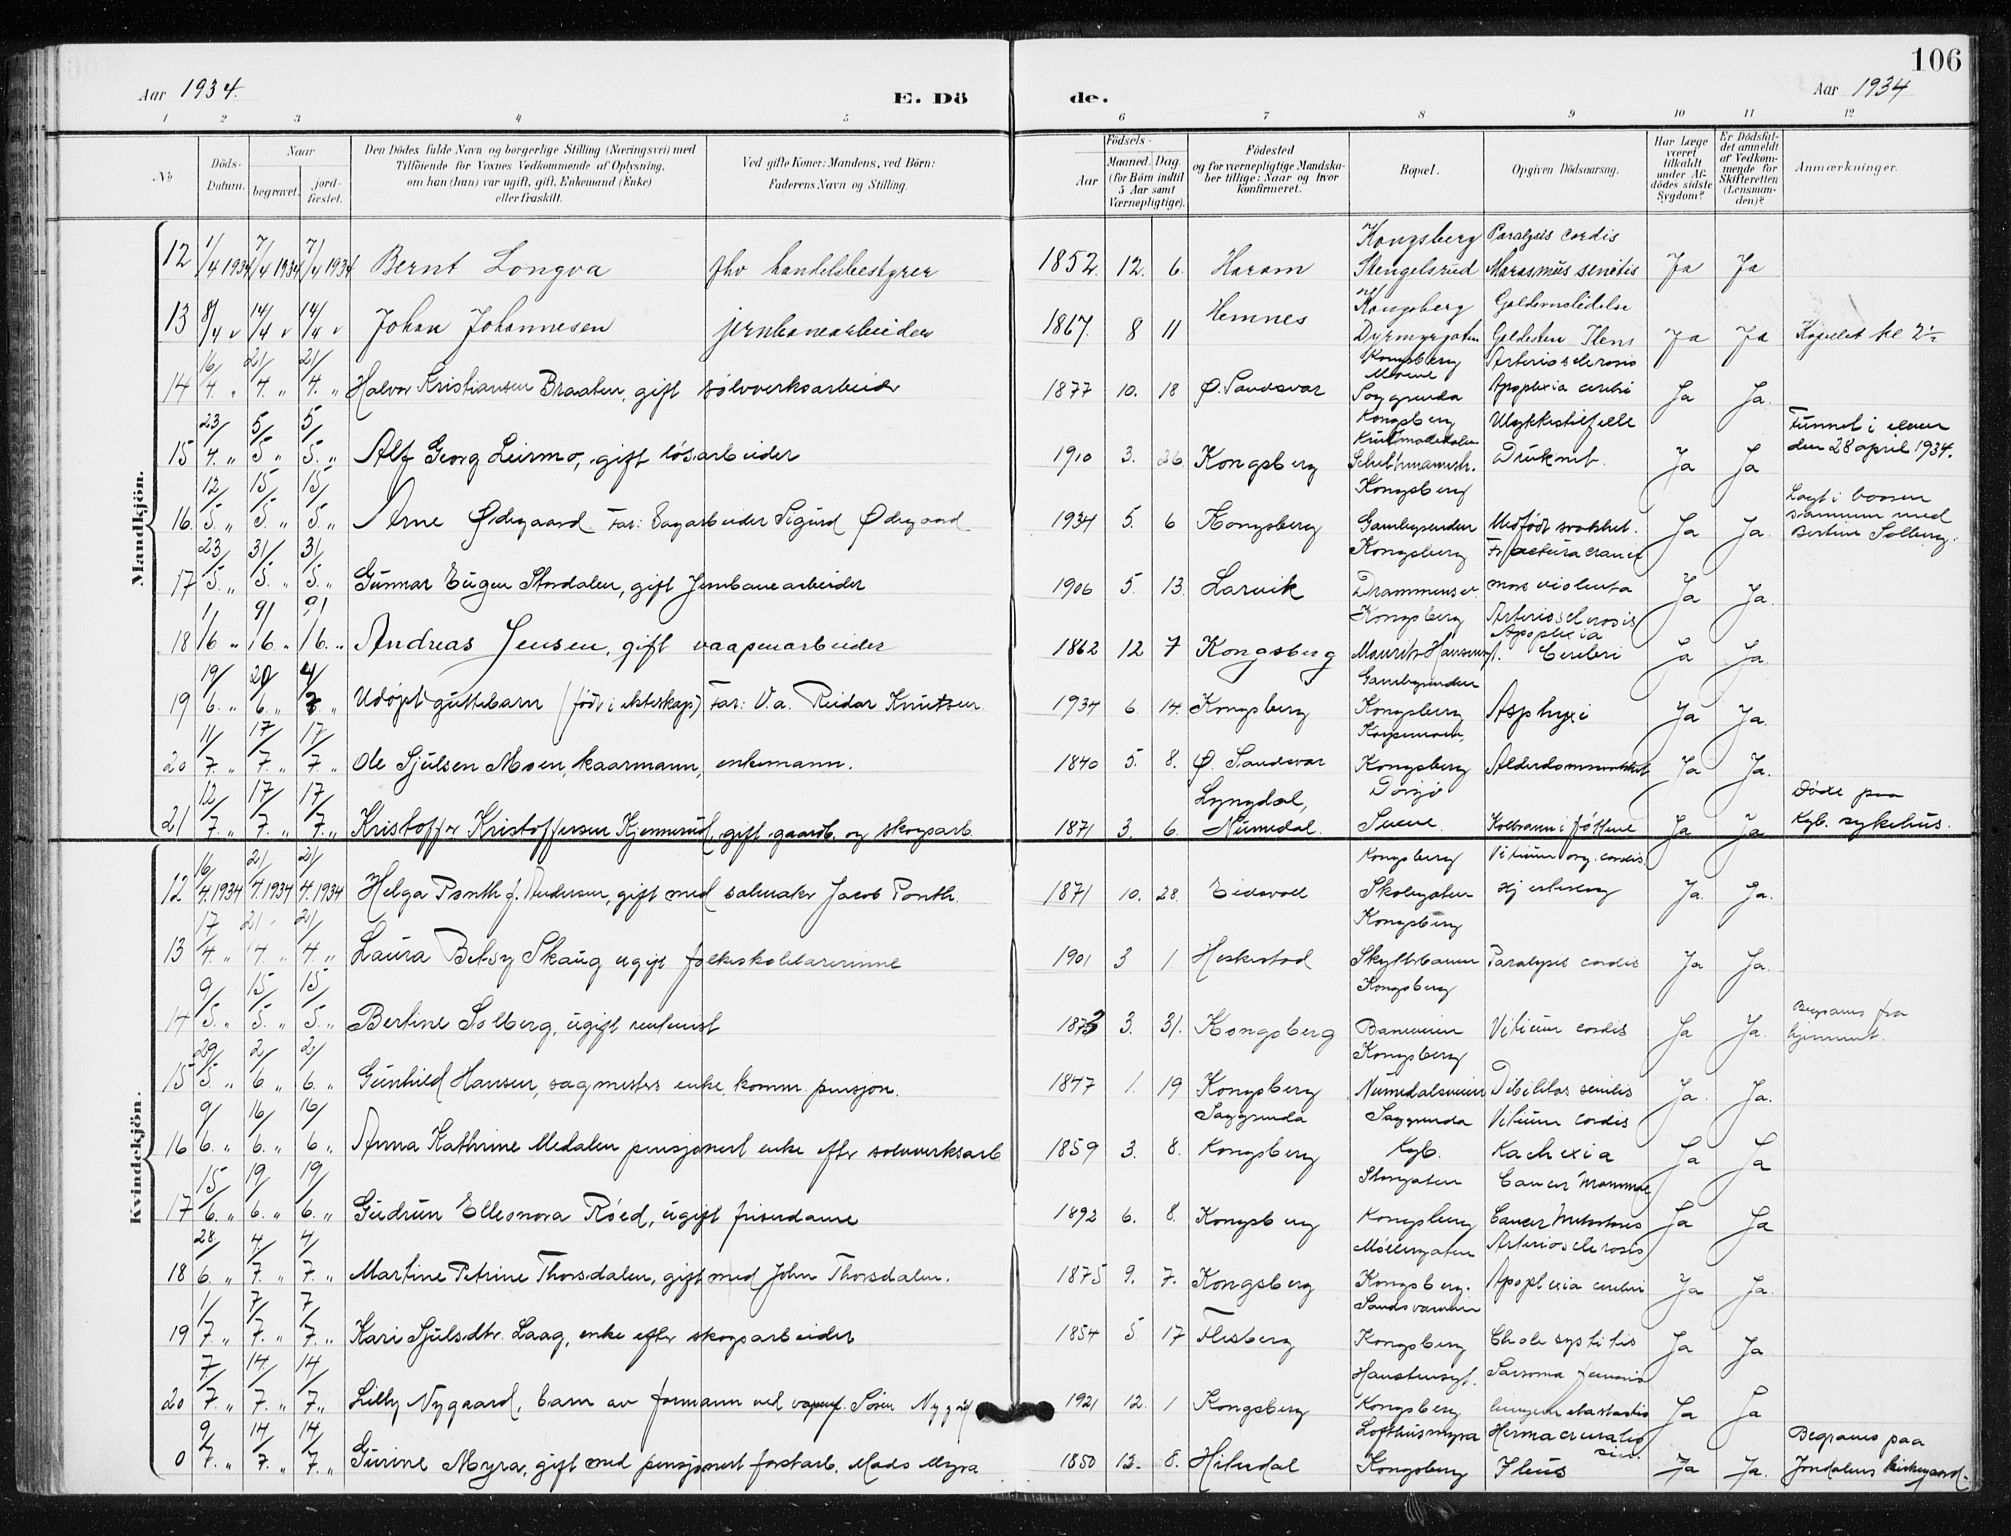 106
Aar 1934. E. Dö de. Aar 1934
1 2 3 4 5 6 7 8 9 10 11 12
No
Döds-Datum.
Naar
begravet.
jord-fæstet.
Den Dödes fulde Navn og borgerlige Stilling (Næringsvei) med
Tilföiende for Voxnes Vedkommende af Oplysning,
om han (hun) var ugift, gift, Enkemand (Enke)
eller fraskilt.
Ved gifte Koner: Mandens, ved Börn:
Faderens Navn og Stilling.
Födsels-
Aar
Maaned. Dag.
(for Börn indtil
5 Aar samt
Værnepligtige).
Födested
og for værnepligtige Mandska-
ber tillige: Naar og hvor
konfirmeret.
Bopæl.
Opgiven Dödsaarsag.
Har Læge
været
tilkaldt
under Af-
dödes sidste
Sygdom?
Er Dödsfal-
det anmeldt
af Vedkom-
mende for
Skifteretten
(Lensman-
den)?
Anmærkninger.
Mandkjön.
12 1/4 1934 7/4 1934 7/4 1934 Bernt Longva fhv handelsbestyrer 1852. 12. 6. Haram Kongsberg Stengelsrud Paralysis cordis Marasmus senilis Ja Ja
13 8/4 " 14/4 " 14/4 " Johan Johannesen jernbanearbeider 1867. 8 11 Hemnes Kongsberg Dyrmyrgaten Galdesten Ileus Ja Ja Kapellet kl 2½
14 16/4. " 21/4. " 21/4. " Halvor Kristiansen Braaten, gift sølvverksarbeider 1877 10. 18 Ø. Sandsvar Kongsberg Saggrenda Arteriosclerosis Apoplexia cerebri Ja Ja.
15 23/4. " 5/5 " 5/5. " Alf Georg Leirmo, gift løsarbeider 1910 3. 26. Kongsberg Kongsberg Ulykkestilfelle Druknet. Ja Ja Funnet i elven den 28 april 1934.
16. 12/5. " 15/5. " 15/5. " Arne Ødegaard. Far: Sagarbeider Sigurd Ødegaard 1934 5. 6 Kongsberg Kongsberg Gamlegrenden Medfødt svakhet. Ja Ja. Lagt i baaren sammen med Bertine Solberg.
17 23/5. " 31/5. " 31/5. " Gunnar Eugen Stordalen, gift Jernbanearbeider 1906 5. 13. Larvik Kongsberg Drammensv. Fractura cranii mors violenta Ja Ja.
18 1/6 " 9/6. " 9/6. " Andreas Jensen, gift vaapenarbeider 1862 12 7 Kongsberg Kongsberg Maurits Hansensgt. Arteriosclerosis Apoplexia Cerebri Ja Ja.
19 19/6. " 20/6. " 4/7 " Udøpt guttebarn (født i ekteskap) Far: V.a. Reidar Knutsen 1934 6. 14. Kongsberg Gamlegrenden Kongsberg Asphyxi Ja Ja.
20 11/7. " 17/7. " 17/7. " Ole Gjulsen Moen, kaarmann, enkemann. 1840 5. 8. Ø. Sandsvar Kongsberg Alderdomssvakhet Ja Ja.
21 12/7. " 17/7. " 17/7. " Kristoffer Kristoffersen Kjennerud, gift. gaardb. og skogsarb. 1871 3. 6. Lyngdal, Numedal. Koldbrann i føttene Ja Ja Døde paa Kgb. sykehus.
Kvindekjön.
12 16/4. 1934 21/4. 1934 21/4. 1934 Helga Ponth f. Andersen, gift med salmaker Jacob Ponth. 1871 10. 28. Eidsvoll Kongsberg Skolegaten Vitium org. cordis. Ja. Ja.
13 17/4. " 21/4. " 21/4. " Laura Betsy Skaug ugift folkeskolelærerinne 1901 3 1. Heskestad Kongsberg Paralysis cordis Ja Ja.
14 9/5. " 15/5. " 15/5. " Bertine Solberg, ugift rentenist 1873 3. 31. Kongsberg Kongsberg Baneveien Vitium cordis Ja Ja. Begraves fra hjemmet.
15 29/5 " 2/6 " 2/6. " Gunhild Hansen, sagmesters enke, komm. pensjon. 1847 1. 19 Kongsberg Kongsberg Numedalsveien Debilitas senilis Ja. Ja.
16 9/6. " 16/6. " 16/6 " Anna Kathrine Medalen pensjonert enke efter sølvverksarb. 1859 3. 8. Saggrenda Kongsberg Saggrenda Kgb. Vitium cordis Kachexia Ja Ja
17 15/6. " 19/6. " 19/6. " Gudrun Elleonora Røed, ugift friserdame 1892 6. 8. Kongsberg Storgaten Kongsberg Cancer Mammae Cancer Metastases Ja Ja
18 28/6. " 4/7. " 4/7 " Martine Petrine Thorsdalen, gift med John Thorsdalen. 1875 9. 7. Kongsberg Møllergaten Kongsberg. Arteriosclerosis Apoplexia cerebri Ja Ja.
19 1/7. " 7/7. " 7/7. " Kari Gjulsdtr. Laag, enke efter skogsarbeider 1854 5. 17 Flesberg Sandsværveien Kongsberg Cholesystitis Ja Ja
20 7/7. " 14/7. " 14/7. " Lilly Nygaard, barn av formann ved vapenf. Søren Nygård 1921 12. 1 Kongsberg Kongsberg Sarcoma femoris Ja Ja
0 9/7. " 14/7. " 14/7. " Gurine Myra, gift med pensjonert forstarb. Mads Myra 1850 12. 8. Hiterdal Lofthusmyra Kongsberg Hernia cruralis sin. Ileus Ja Ja. Begraves paa Jondalens kirkegaard.